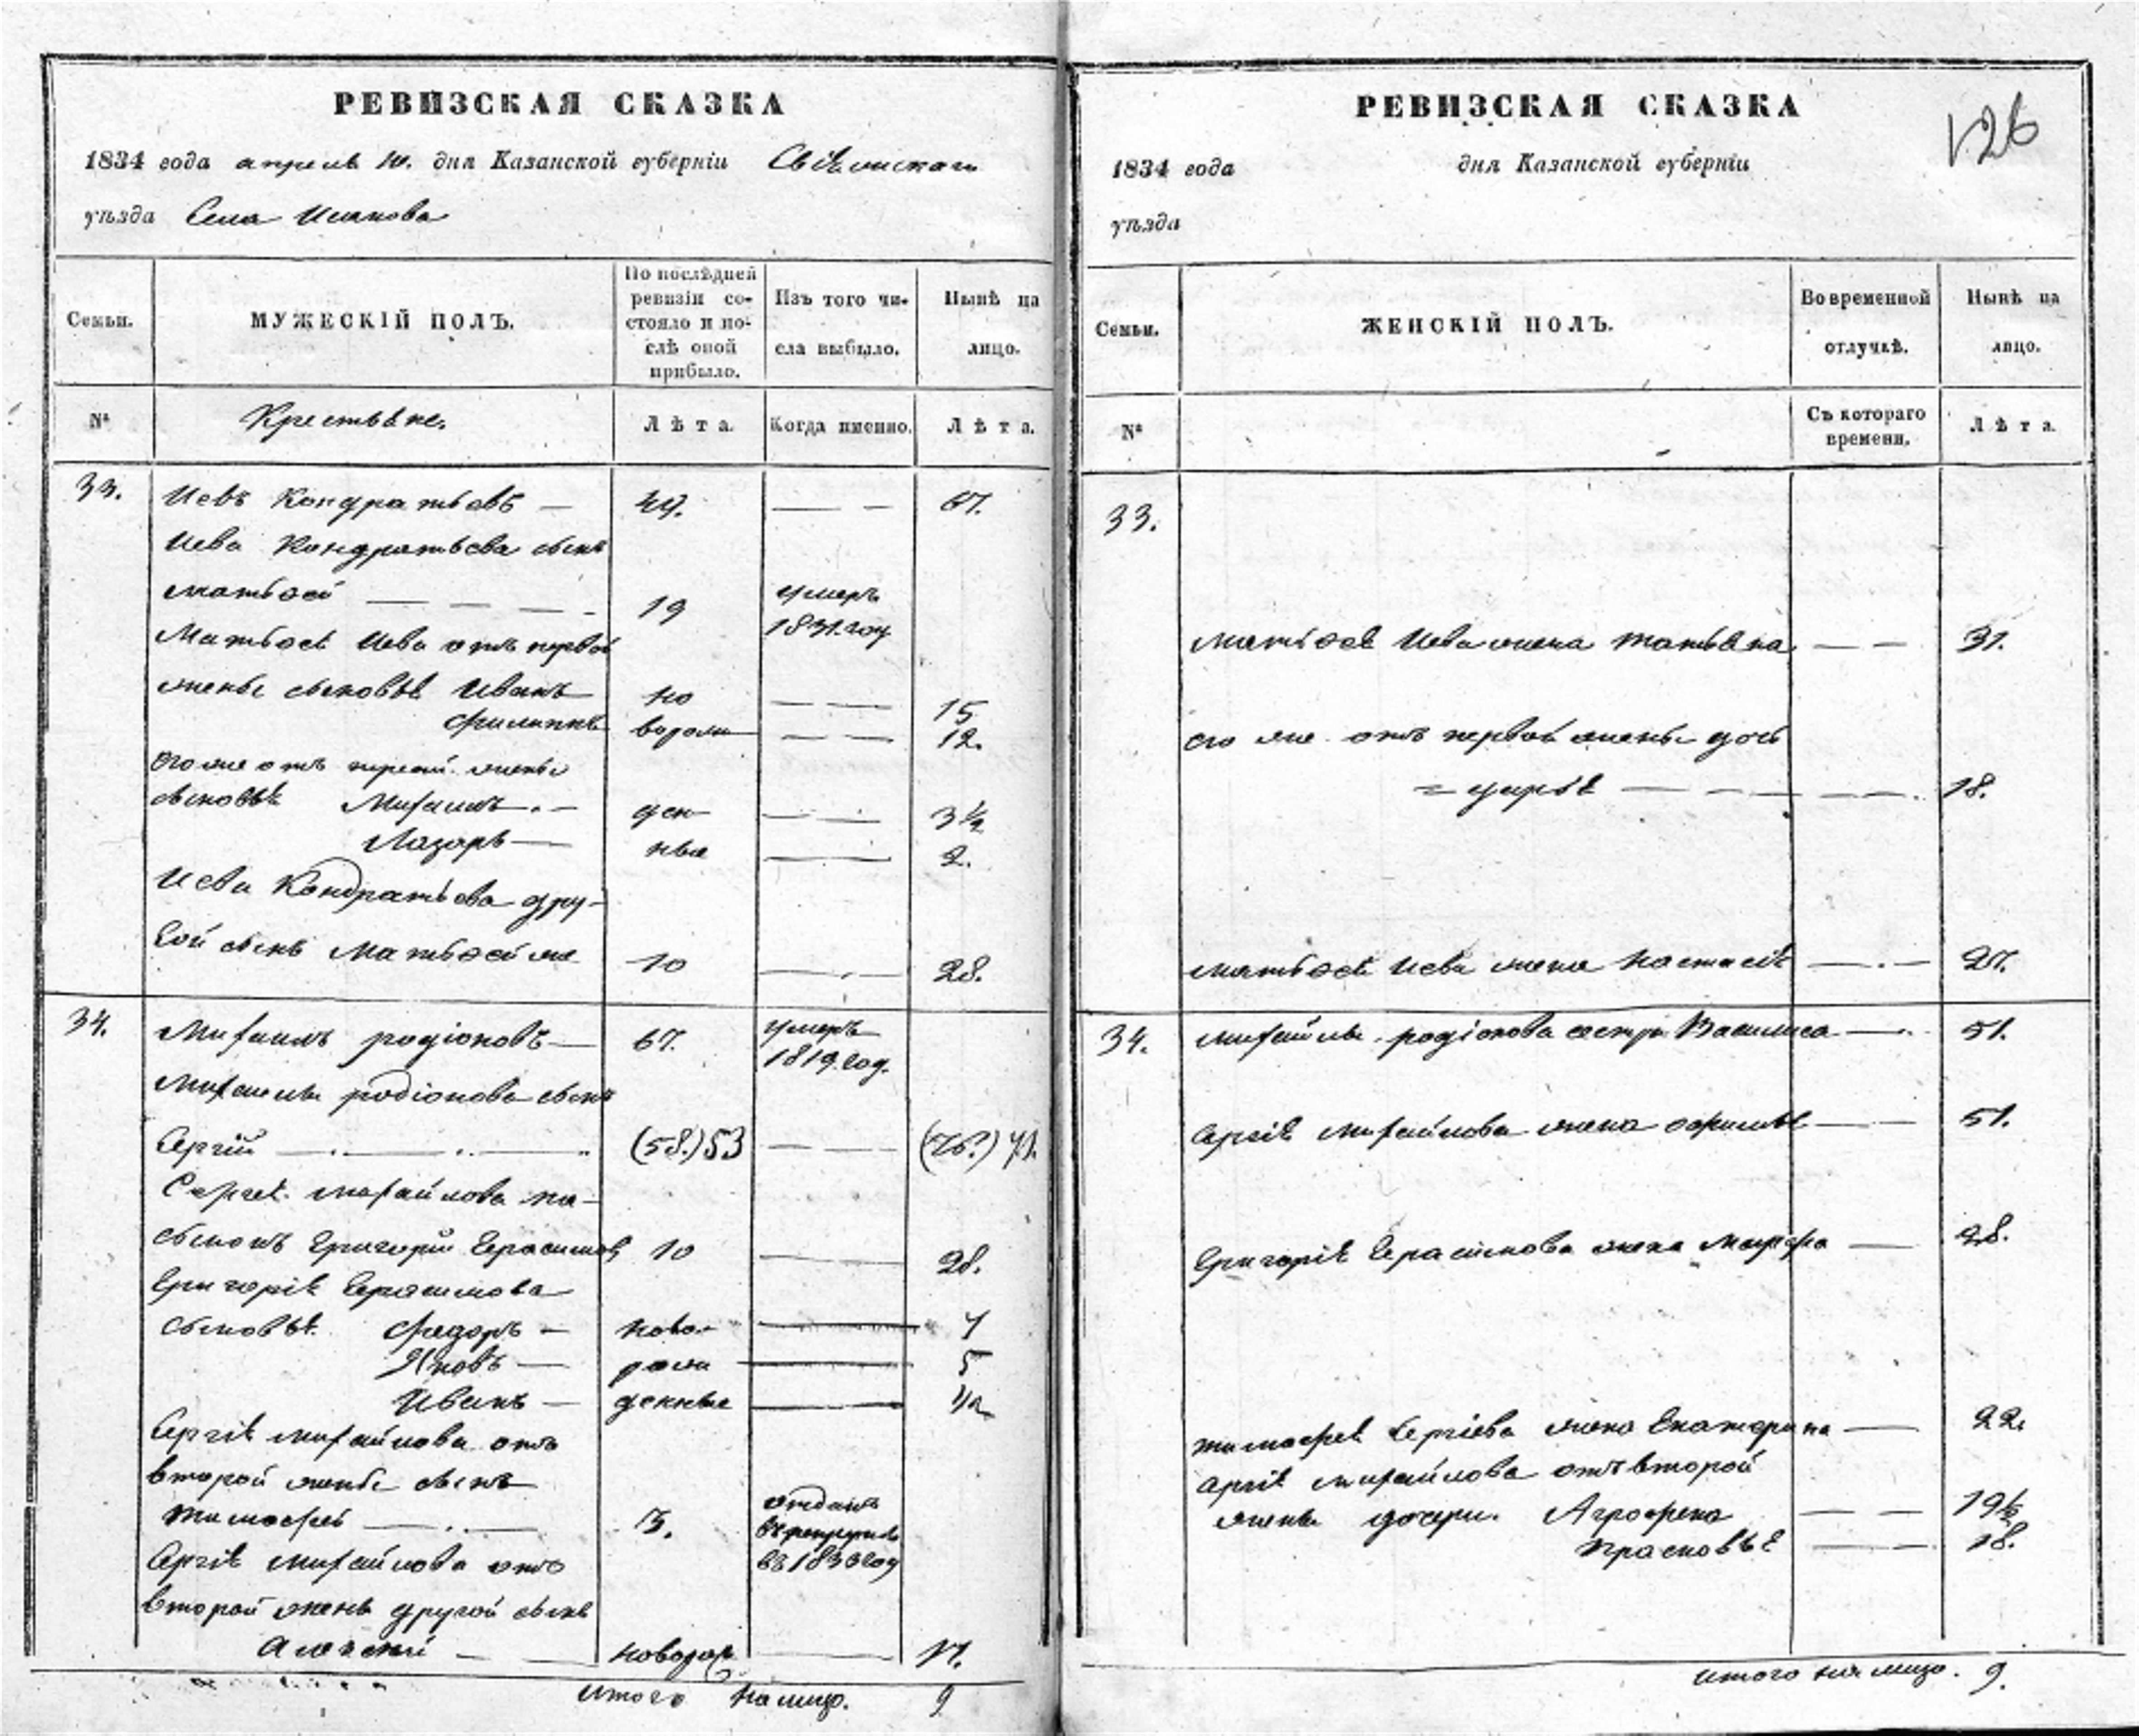 РЕВИЗСКАЯ СКАЗКА
1834 года апреля 10. дня Казанской губерніи
уѣзда Села
Семьи.
МУЖЕСКІЙ ПОЛЪ.
По послѣдней ревизіи со-
стояло и по-
слѣ оной
прибыло.
Изъ того чи-
сла выбыло.
Нынѣ на
лицо.
№
Крестьяне.
Лѣта.
Когда именно.
Лѣта.
33.
Иевъ Кондратьевъ — 49. — — 67.
Иева Кондратьева сынъ
Матвей — — — - 19 умеръ
1831. году
Матвея Иева отъ первой
жены сыновья Иванъ но — — 15
Филиппъ ворож — — 12.
его же отъ жены
сыновья Михаилъ . — ден — — 3½
Лазарь — ные — 2.
Иева Кондратьева дру-
гой сынъ Матвей же 10 —.— 28.
34.
Михаилъ родіоновъ — 67. умеръ
1819. год.
Михаила родіонова сынъ
Сергій — . — . — (58.) 53 — — (76.) 71.
Сергея михайлова па-
сынокъ Григорій Герасимовъ 10 — 28.
Григорія Герасимова
сыновья Федоръ — ново- — 7
Яковъ — рож — 5
Иванъ — денные — 1/2
Сергія михайлова отъ
второй жены сынъ
тимофей — . — 3. отданъ
в рекруты
въ 183 году
Сергія михайлова отъ
второй жены другой сынъ
Алексей — — новорож — 17.
Итого на лицо. 9
РЕВИЗСКАЯ СКАЗКА
126
1834 года дня Казанской губерніи
уѣзда
Семьи.
ЖЕНСКІЙ ПОЛЪ.
Во временной
отлучкѣ.
Нынѣ на
лицо.
№
Съ котораго
времени.
Лѣта.
33.
Матвея Иева жена татьяна — — 31.
его же отъ первой жены дочь
= дарья — — — — —. 18.
Матвея Иева жена настасья —.— 27.
34.
Михайлы родіонова сестра Василиса —. 51.
Сергія михайлова жена — 51.
Григорія Герасимова жена Марфа — 28.
тимофея Сергіева жена Екатерина — 22.
Сергія михайлова отъ второй
жены дочери. Аграфена — — 19½
Прасковья — — 18.
итого на лицо. 9.